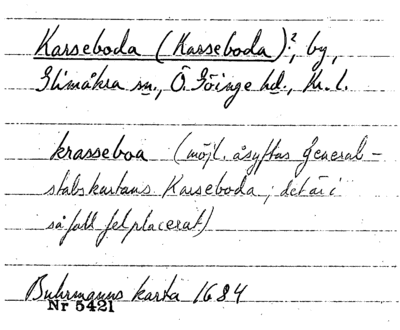 Karseboda (Kasseboda)?, by,
Glimåkra sn., Ö. Göinge hd., Kr. l.
krasseboa (möjl. åsyftas General-
stabskartans Karseboda; det är i
så fall felplacerat)
Buhrmanns karta 1684
Nr 5421